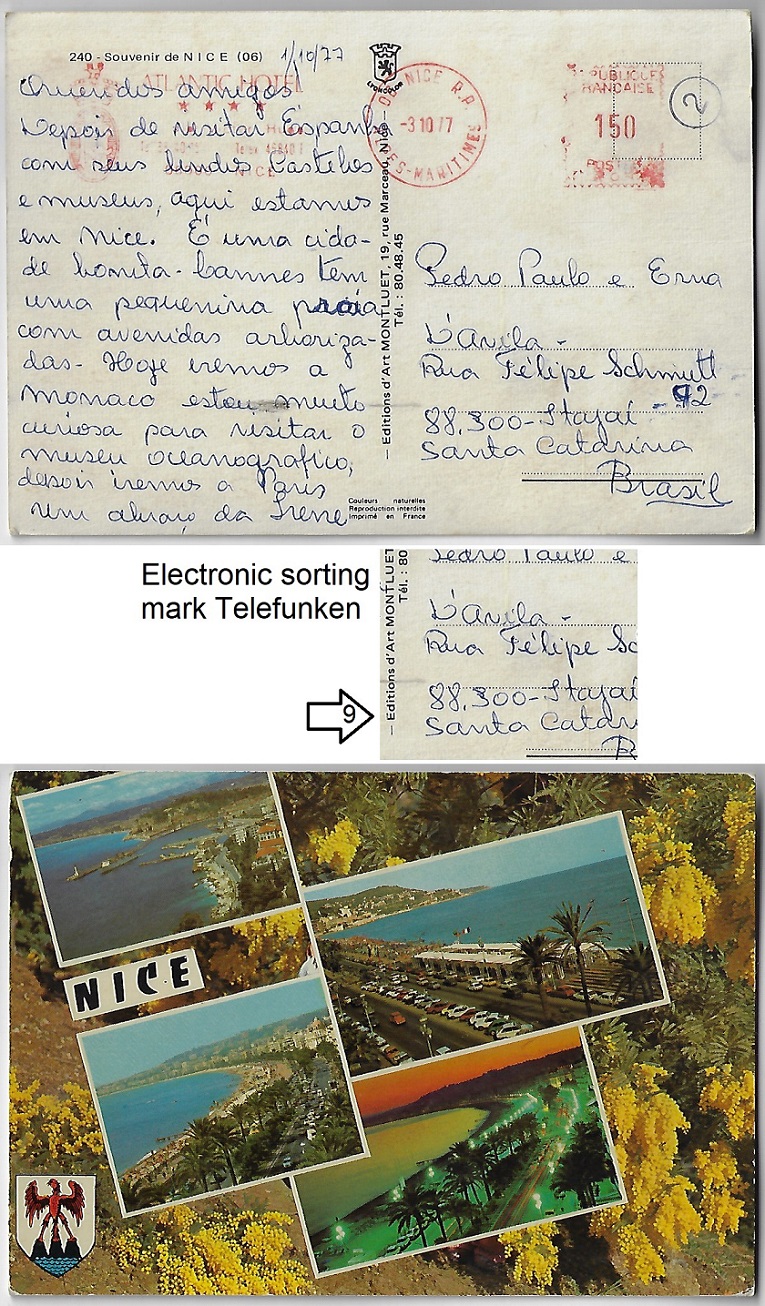 240 - Souvenir de NICE (06) 1/10/77
ATLANTIC HOTEL
★ ★ ★ ★
NICE
Queridos amigos
Depois de visitar Espanha
com seus lindos Castelos
e museus, aqui estamos
em Nice. É uma cida-
de bonita - Cannes tem
uma pequenina praia
com avenidas arboriza-
das - Hoje iremos a
Monaco estou muito
curiosa para visitar o
museu oceanografico,
depois iremos a Paris
Um abraço da Irene
— Editions d'Art MONTLUET, 19, rue Marceau, Nice —
Tél. : 80.48.45
Couleurs naturelles
Reproduction interdite
Imprimé en France
NICE R.P.
-3 10 77
ALPES-MARITIMES
REPUBLIQUE
FRANÇAISE
150
POSTES
2
Pedro Paulo e Erna
D'Avila -
Rua Félipe Schmitt
- 92
88.300 - Itajaí -
Santa Catarina
Brasil
Electronic sorting
mark Telefunken
9
— Editions d'Art MONTLUET
Tél. : 80
Pedro Paulo e
D'Avila -
Rua Félipe Sc
88.300 - Itajaí
Santa Catar
NICE